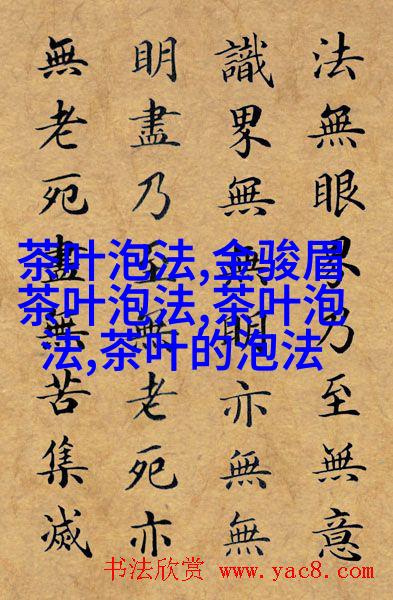 法無眼界乃至無意
識界無無明亦無無
明盡乃至無老死亦
無老死盡無苦集滅
茶叶泡法,金骏眉
茶叶泡法,茶叶泡
法,茶叶的泡法
书法欣赏 www.yac8.com